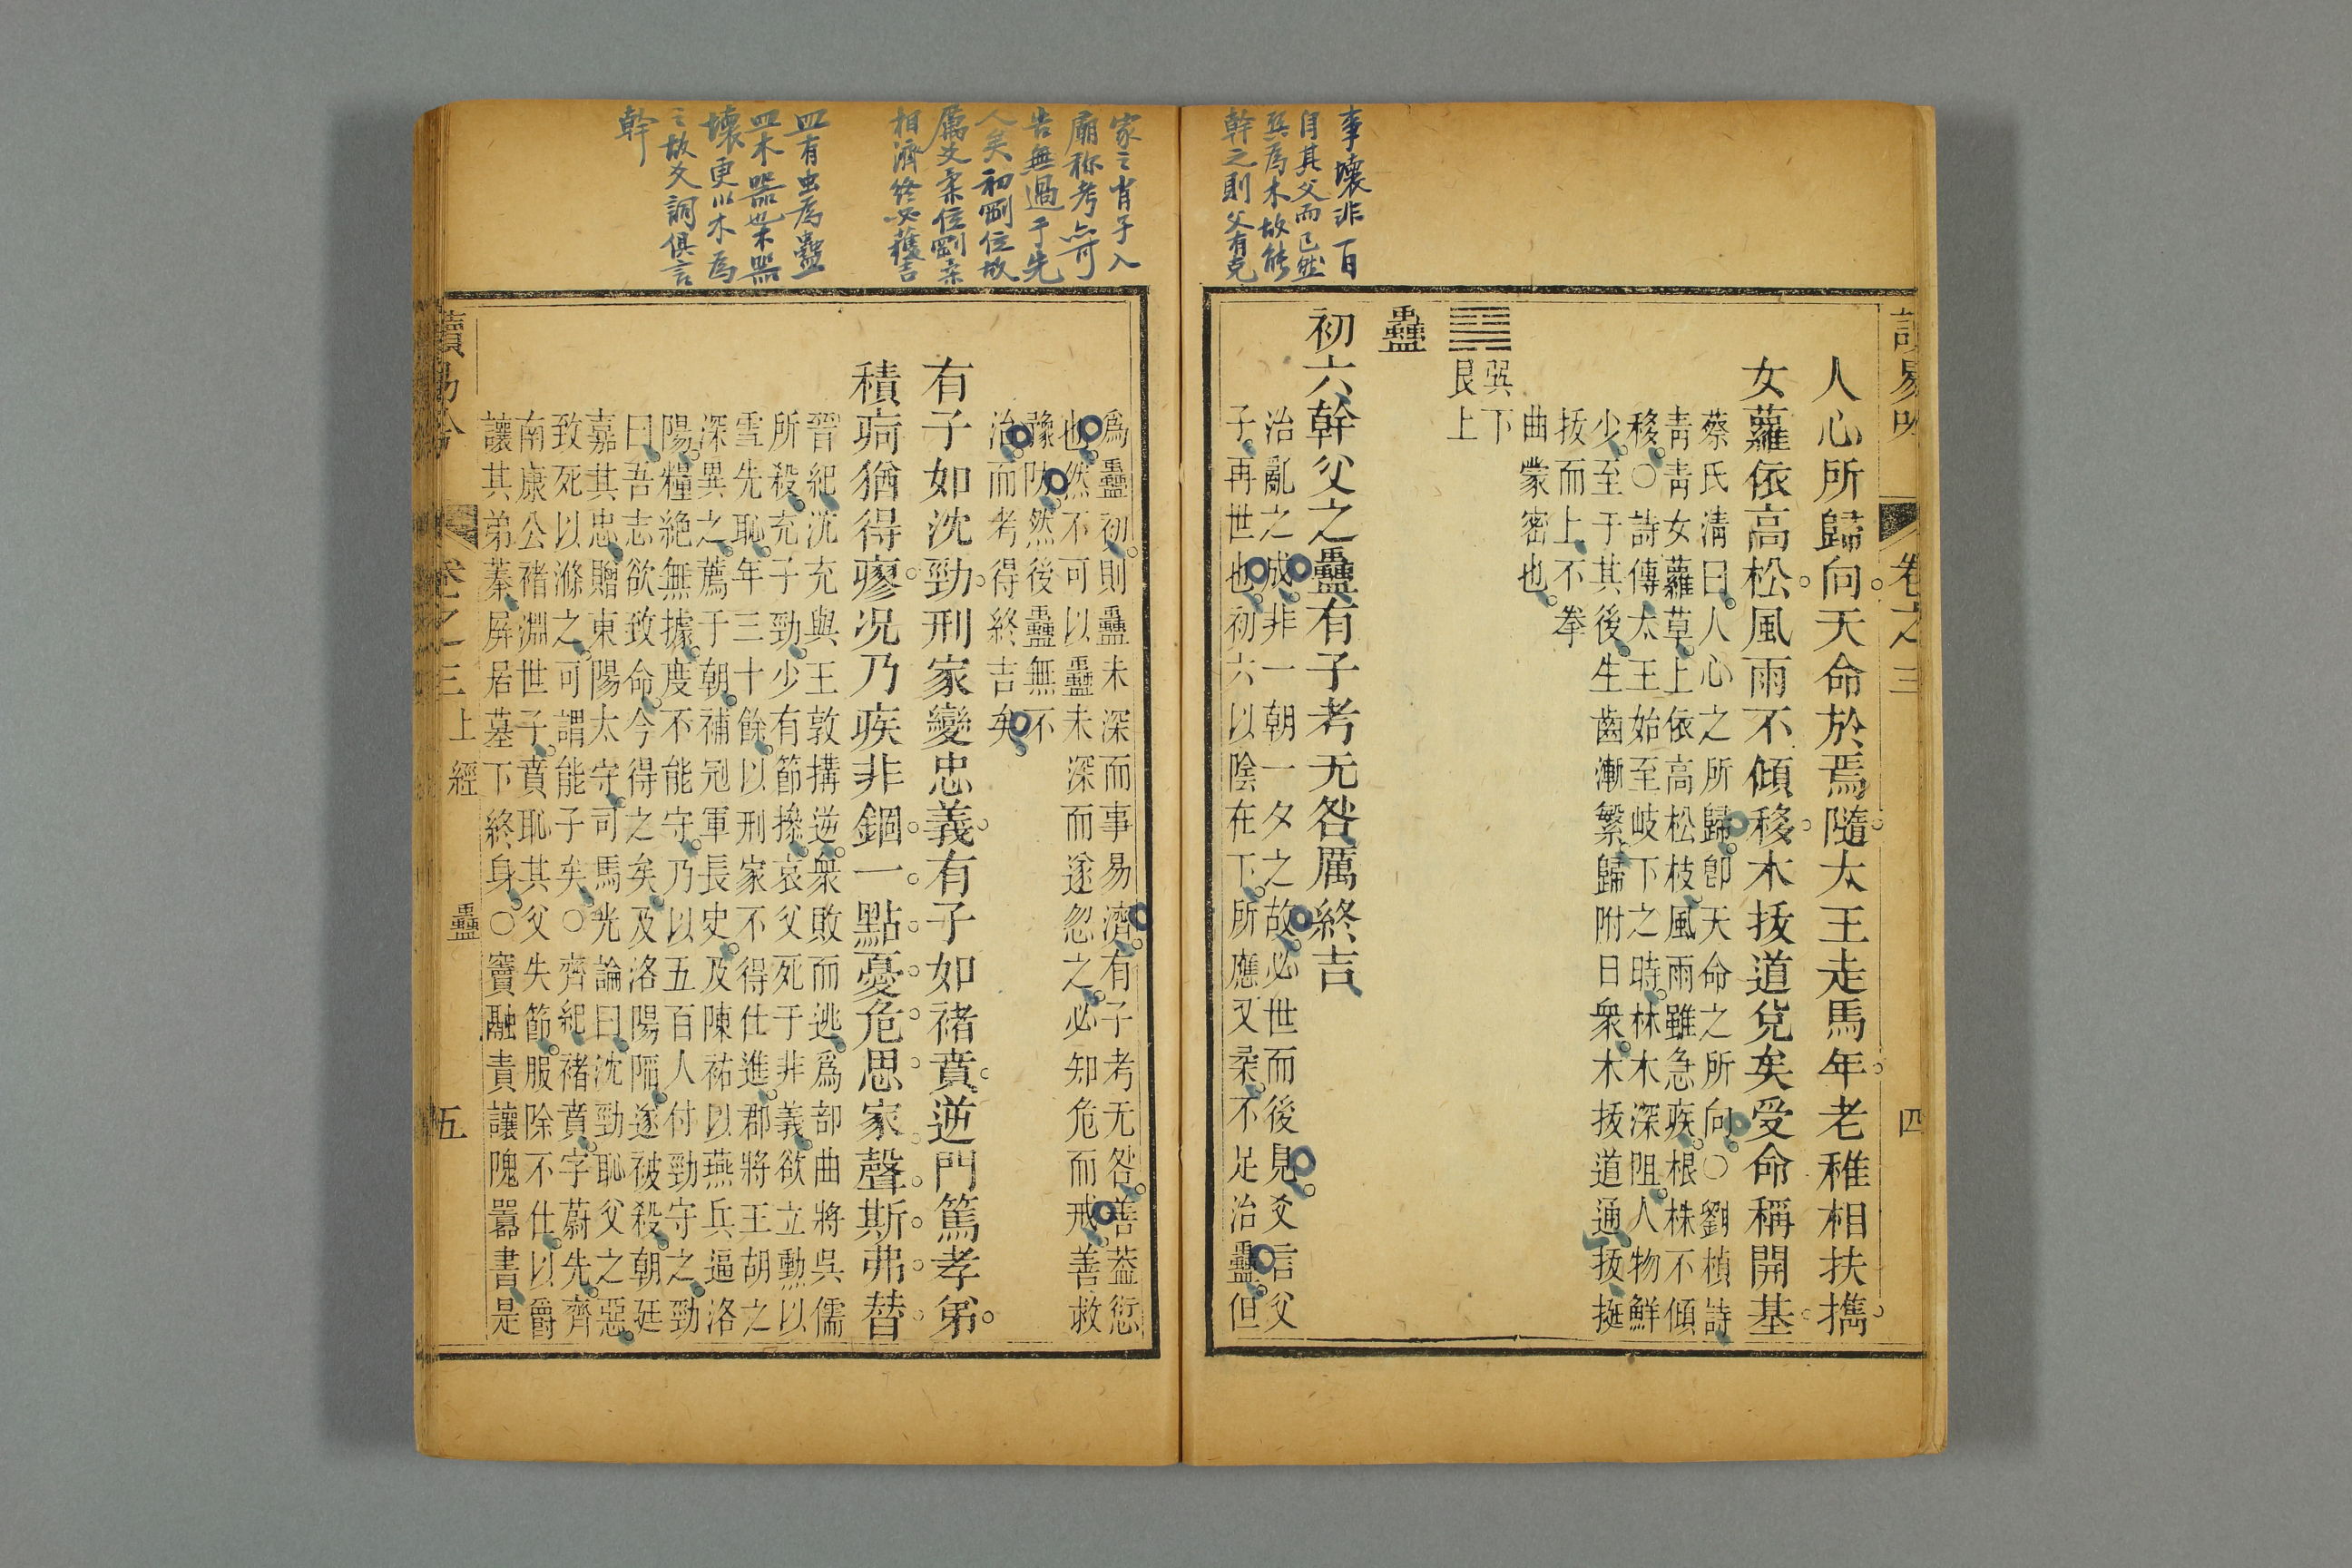 事壞非一百
自其父而已然
巽為木故能
幹之則父有克
讀易吟
卷之三
四
人心所歸向天命於焉隨太王走馬年老稚相扶攜
女蘿依高松風雨不傾移木拔道兌矣受命稱開基
蔡氏淸曰人心之所歸卽天命之所向○劉楨詩
靑靑女蘿草上依高松枝風雨雖急疾根株不傾
移○詩傳太王始至岐下之時林木深阻人物鮮
少至于其後生齒漸繁歸附日衆木拔道通拔挺
拔而上不拳
曲蒙密也
巽下
艮上
蠱
初六幹父之蠱有子考无咎厲終吉
治亂之成非一朝一夕之故必世而後見爻言父
子再世也初六以陰在下所應又柔不足治蠱但
家之肖子入
廟称考亦可
告無過于先
人矣初剛位故
厲爻柔位剛柔
相濟終必獲吉
皿有虫為蠱
皿木器也木器
壞更以木為
之故爻詞俱言
幹
爲蠱初則蠱未深而事易濟有子考无咎善葢愆
也然不可以蠱未深而遂忽之必知危而戒善救
豫防然後蠱無不
治而考得終吉矣
有子如沈勁刑家變忠義有子如褚賁逆門篤孝弟
積疴猶得瘳况乃疾非錮一點憂危思家聲斯弗替
晉紀沈充與王敦搆逆衆敗而逃爲部曲將吳儒
所殺充子勁少有節操哀父死于非義欲立勳以
雪先恥年三十餘以刑家不得仕進郡將王胡之
深異之薦于朝補冠軍長史及陳祐以燕兵逼洛
陽糧絶無據度不能守乃以五百人付勁守之勁
曰吾志欲致命今得之矣及洛陽陷遂被殺朝廷
嘉其忠贈東陽太守司馬光論曰沈勁恥父之惡
致死以滌之可謂能子矣○齊紀褚賁字蔚先齊
南康公褚淵世子賁恥其父失節服除不仕以爵
讓其弟蓁屏居墓下終身○竇融責讓隗囂書是
讀易吟
卷之三
上經
蠱
五